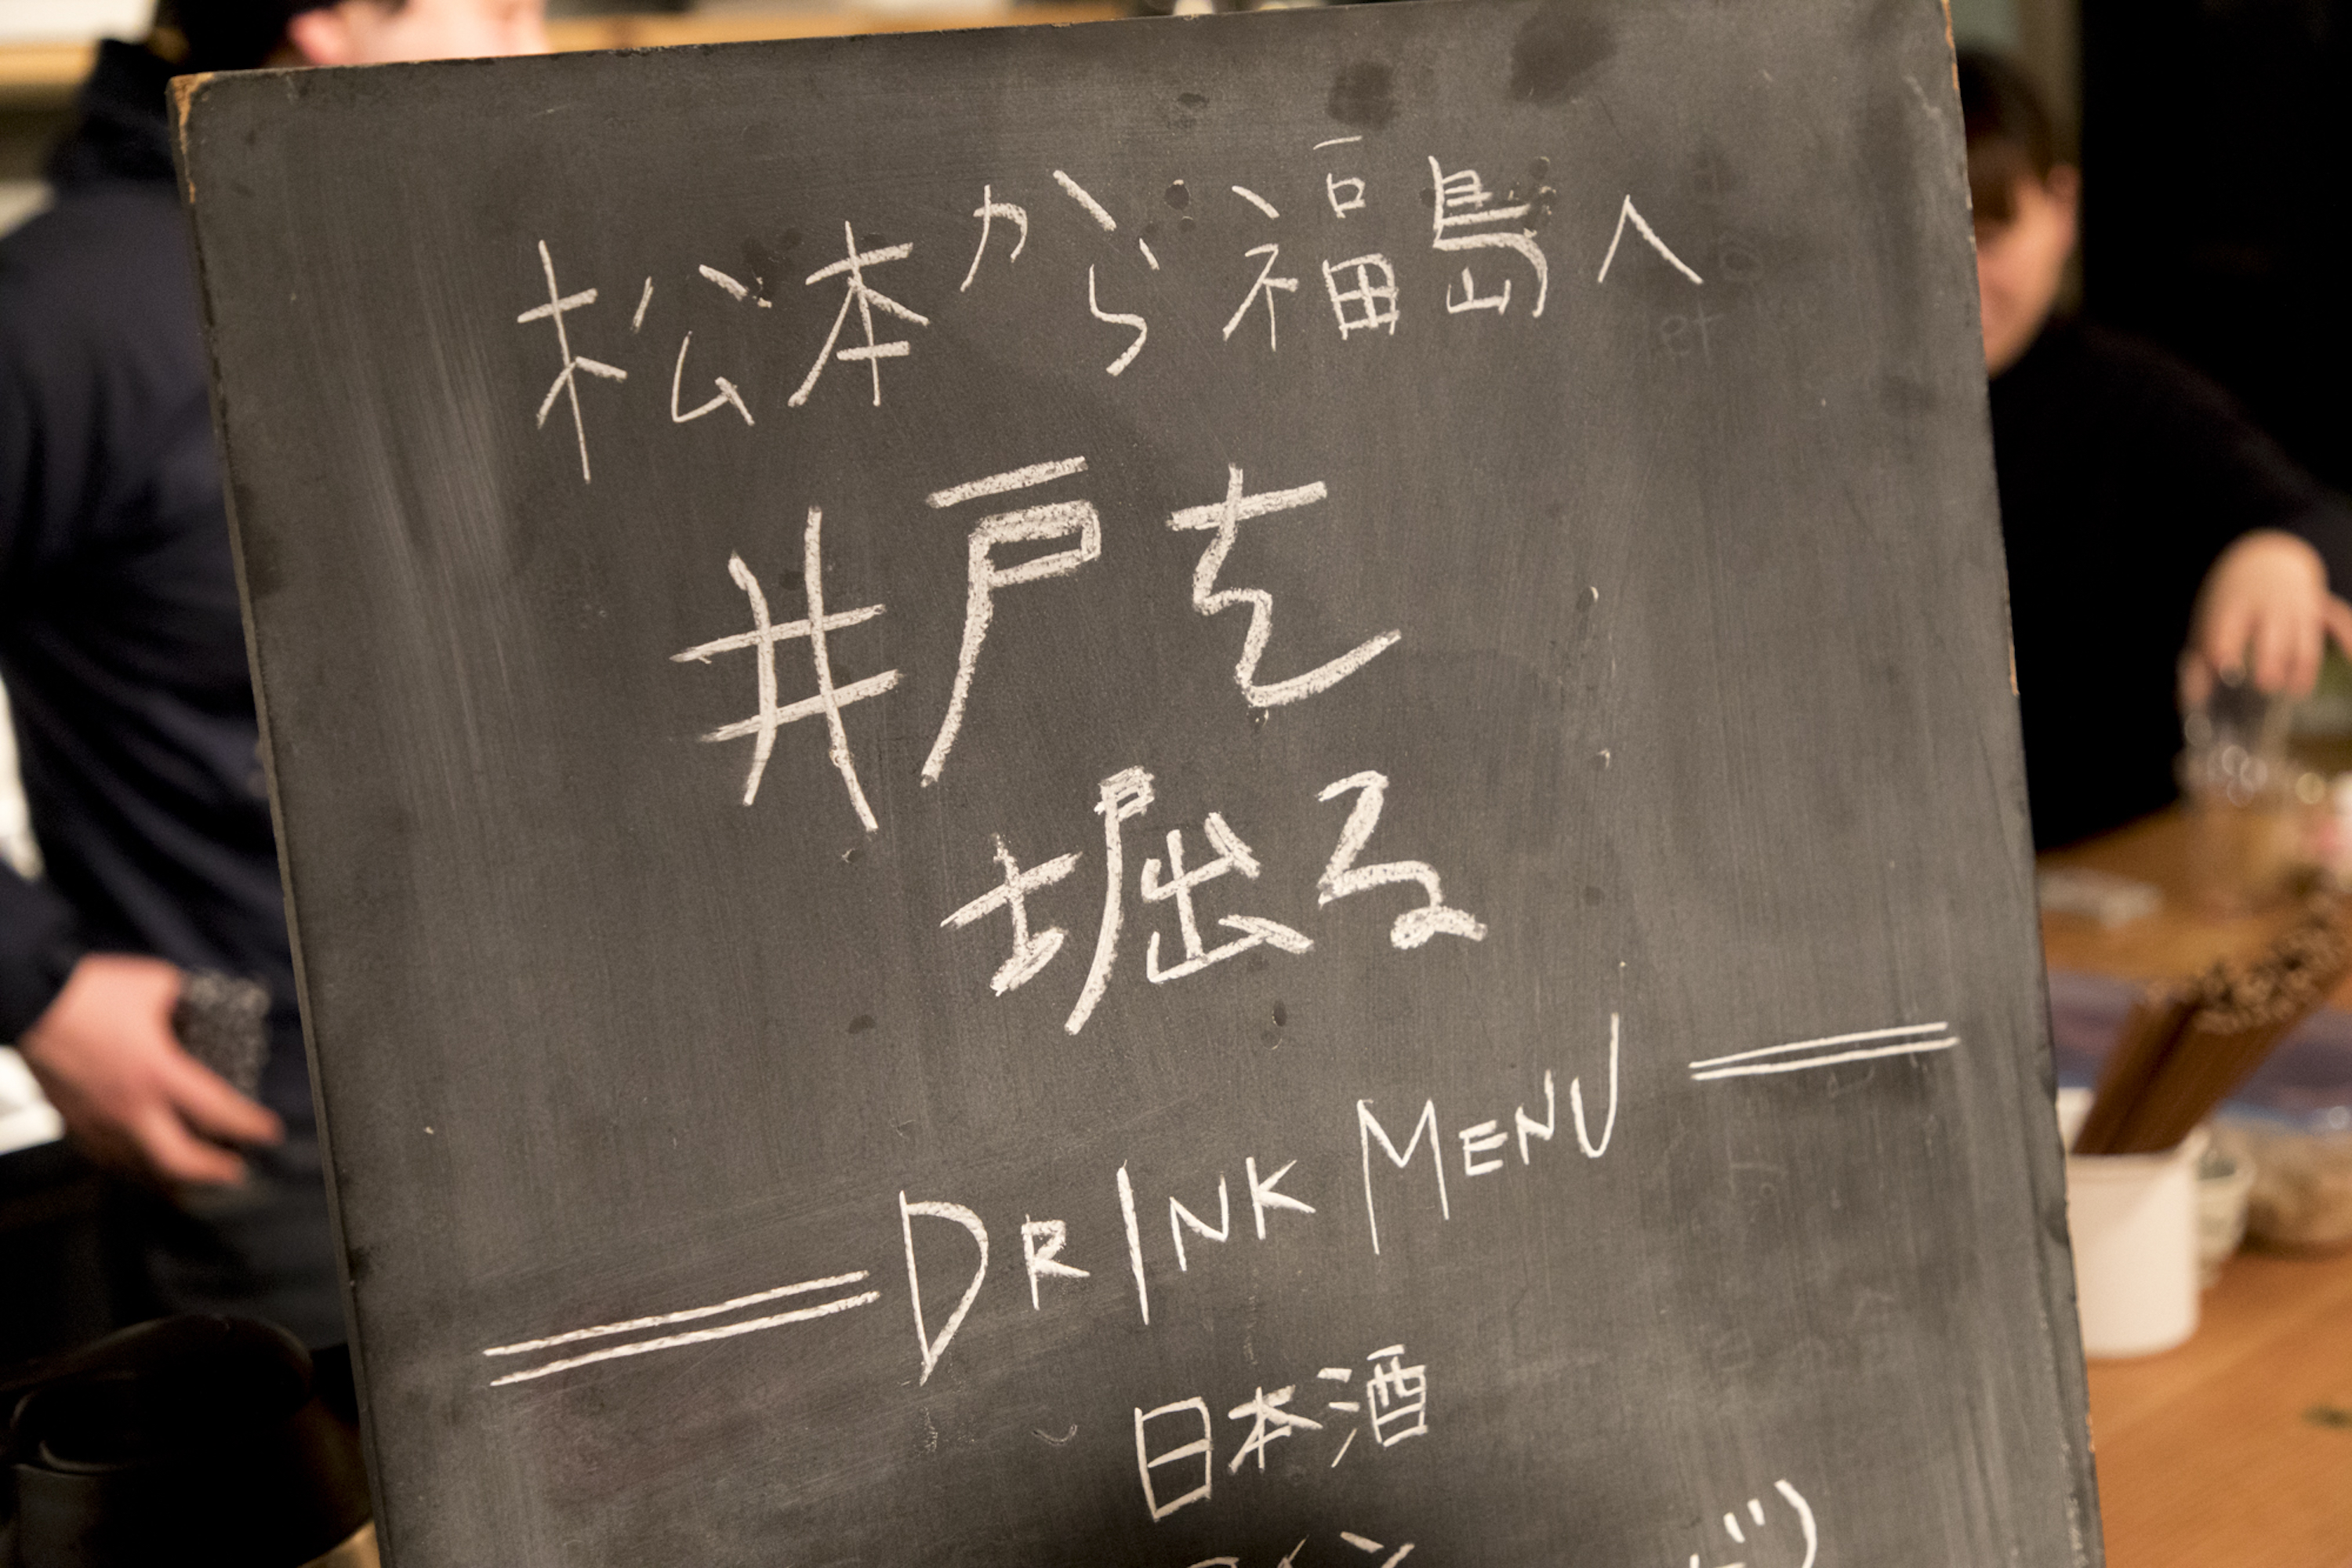 松本から福島へ
井戸を
堀る
DRINK MENU
日本酒